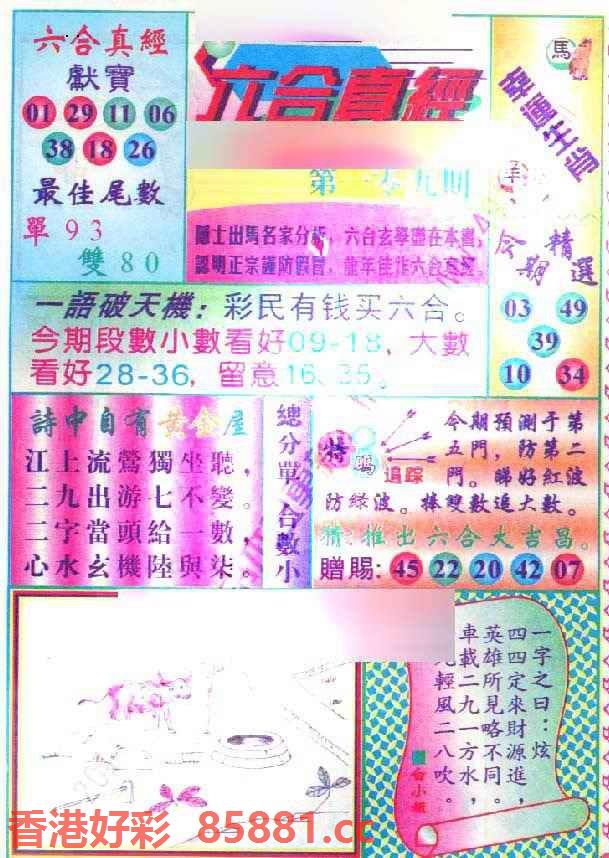 六合真經
獻寶
01 29 11 06
38 18 26
最佳尾數
單 93
雙 80
六合真經
第一零九期
隱士出馬名家分析，六合玄學盡在本書，
認明正宗謹防假冒，龍年佳作六合真經。
馬
幸運生肖
羊
今期精選
03 49
39
10 34
一語破天機：彩民有钱买六合。
今期段數小數看好09-18，大數
看好28-36，留意16.35。
詩中自有黃金屋
江上流鶯獨坐聽，
二九出游七不變。
二字當頭給一數，
心水玄機陸與柒。
總分單 合數小
特碼
追踪
今期預測于第
五門，防第二
門。睇好紅波
防綠波。捧雙數追大數。
推出六合大吉昌。
贈賜：45 22 20 42 07
一字之曰：炫
四四定來財源進，
英雄所見略不同。
車載二九一方水，
輕風二八吹。
香港好彩 85881.cc